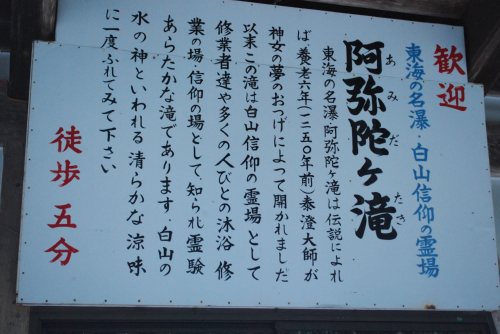 歓迎
東海の名瀑 白山信仰の霊場
阿弥陀ヶ滝
あみだ たき
東海の名瀑 阿弥陀ヶ滝は伝説によれ
ば 養老六年(一二五〇年前)泰澄大師が
神女の夢のおつげによって開かれました
以来この滝は白山信仰の霊場 として
修業者達や多くの人びとの沐浴 修
業の場 信仰の場として、知られ霊験
あらたかな滝であります.白山の
水の神といわれる 清らかな 涼味
に一度ふれてみて下さい
徒歩 五分